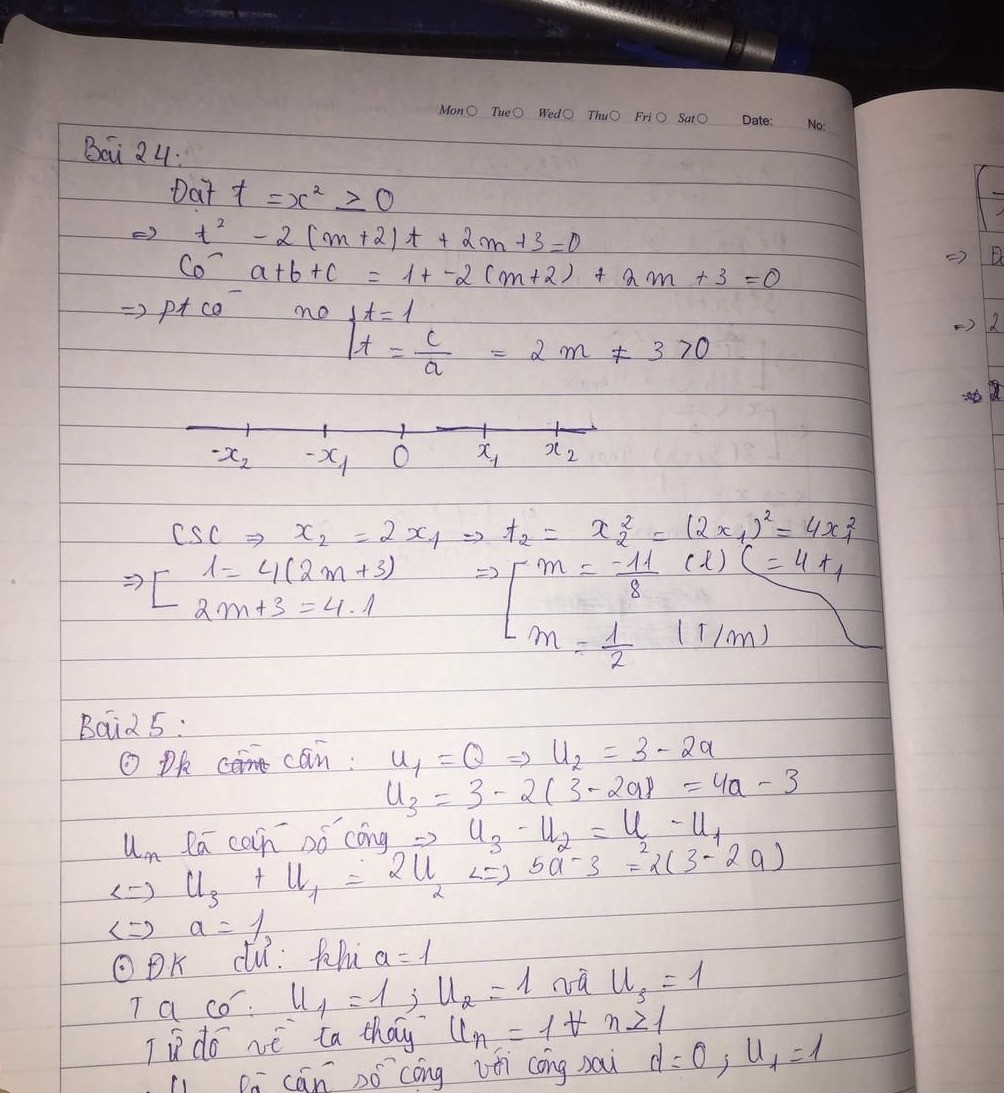 Mon Tue Wed Thu Fri Sat Date: No:
Bài 24:
Đặt t = x² ≥ 0
=> t² - 2(m+2)t + 2m+3=0
Có a+b+c = 1+-2(m+2) + 2m +3 =0
=> pt có no t=1
t = c/a = 2m ≠ 3 >0
-x₂ -x₁ 0 x₁ x₂
CSC => x₂ = 2x₁ => t₂ = x₂² = (2x₁)² = 4x₁²
=> [ 1= 4(2m+3) => [ m = -11/8 (l) ( = 4t₁
2m+3 = 4.1
m = 1/2 (T/m)
Bài 25:
⊙ Đk cần: U₁ = a => U₂ = 3 - 2a
U₃ = 3 - 2(3-2a) = 4a - 3
Uₙ là cấp số cộng => U₃ - U₂ = U₂ - U₁
<=> U₃ + U₁ = 2U₂ <=> 5a-3 = 2(3-2a)
<=> a = 1
⊙ ĐK đủ: khi a=1
Ta có: U₁ = 1 ; U₂ = 1 và U₃ = 1
Từ đó về ta thấy Uₙ = 1 ∀ n≥1
là cấp số cộng với công sai d=0 ; U₁ =1
=>
=> 2